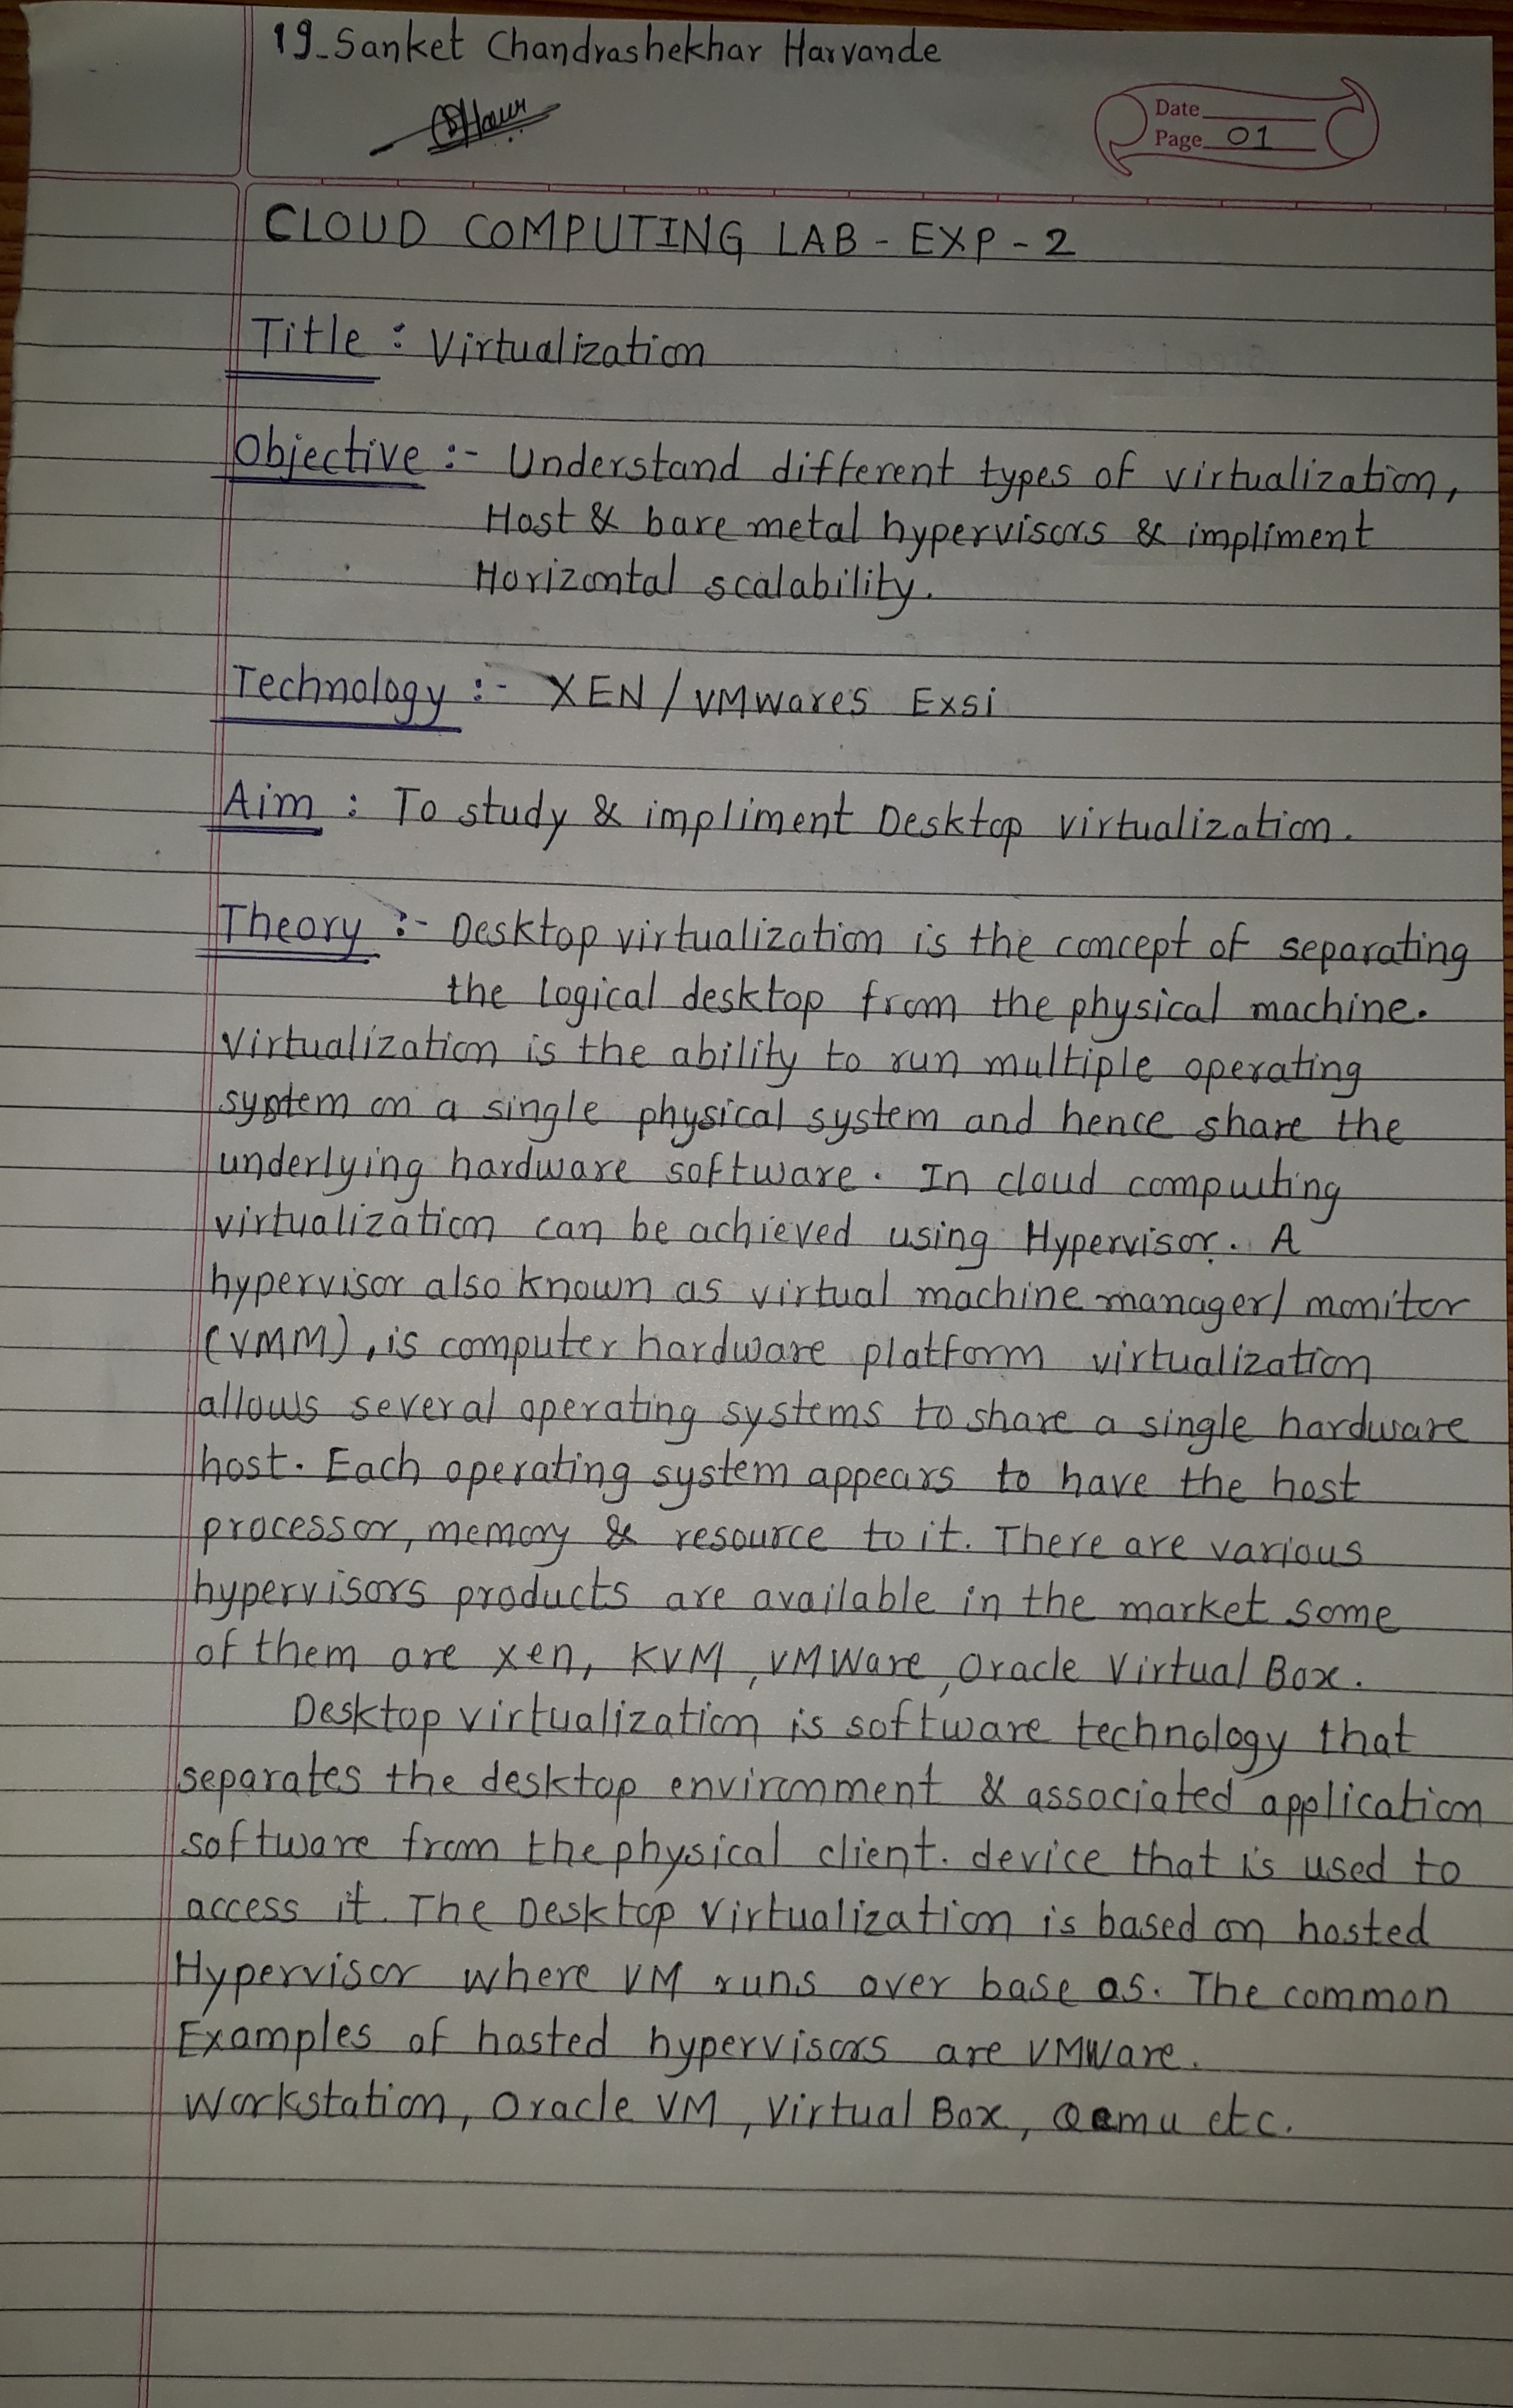 19_Sanket Chandrashekhar Harvande
Date
Page 01
CLOUD COMPUTING LAB - EXP - 2
Title : Virtualization
Objective :- Understand different types of virtualization,
Host & bare metal hypervisors & impliment
Horizontal scalability.
Technology :- XEN / VMwares Exsi
Aim : To study & impliment Desktop virtualization.
Theory :- Desktop virtualization is the concept of separating
the logical desktop from the physical machine.
Virtualization is the ability to run multiple operating
system on a single physical system and hence share the
underlying hardware software. In cloud computing
virtualization can be achieved using Hypervisor. A
hypervisor also known as virtual machine manager/monitor
(VMM), is computer hardware platform virtualization
allows several operating systems to share a single hardware
host. Each operating system appears to have the host
processor, memory & resource to it. There are various
hypervisors products are available in the market some
of them are xen, KVM, VMWare, Oracle Virtual Box.
Desktop virtualization is software technology that
separates the desktop environment & associated application
software from the physical client. device that is used to
access it. The Desktop Virtualization is based on hosted
Hypervisor where VM runs over base os. The common
Examples of hosted hypervisors are VMWare.
Workstation, Oracle VM, Virtual Box, Qemu etc.